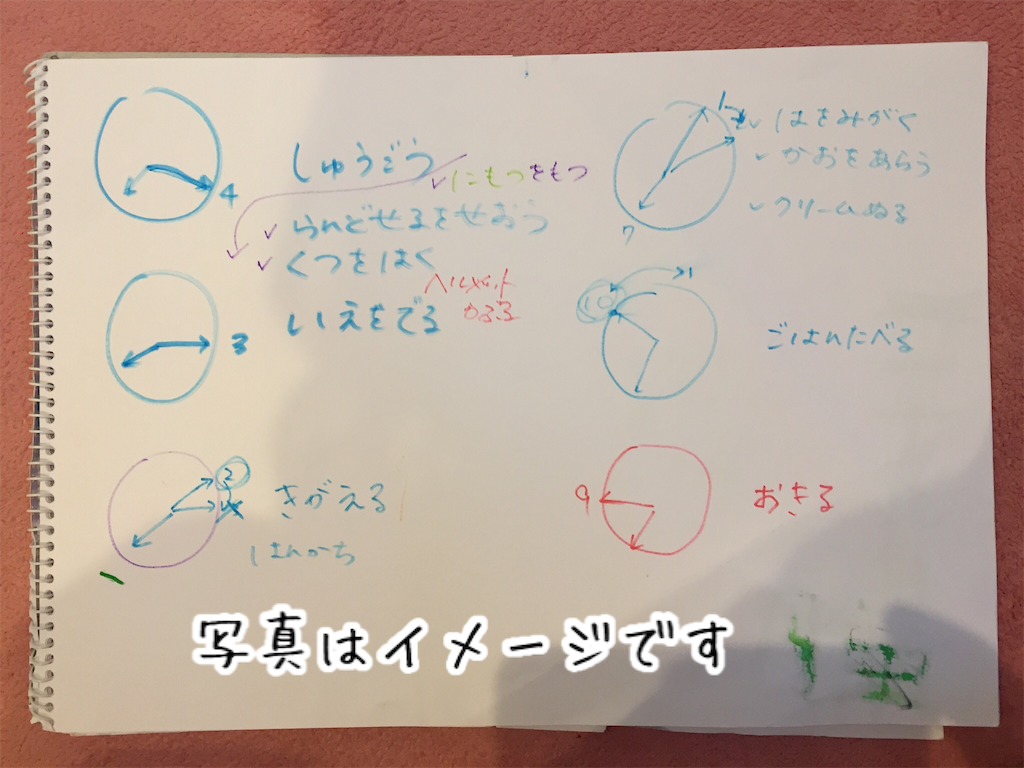 4
しゅうごう
にもつをもつ
られどせるをせおう
くつをはく
ヘルメット
かぶる
3
いえをでる
2
きがえる
はんかち
1
はをみがく
かおをあらう
クリームぬる
7
10
1
ごはんたべる
9
おきる
写真はイメージです